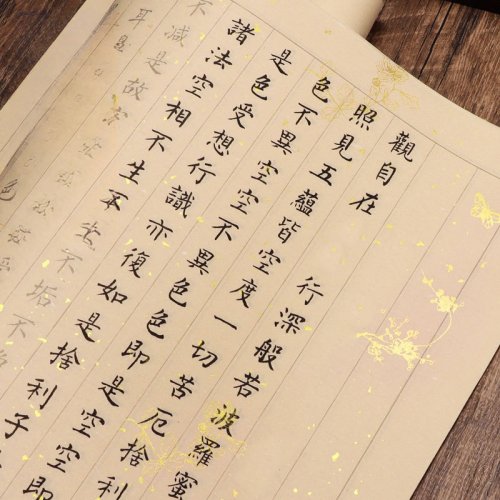 觀自在 行深般若波羅蜜
照見五蘊皆空度一切苦厄捨
色不異空空不異色色即是空空即
是色受想行識亦復如是捨利子
諸法空相不生不 不垢不
不減是故
耳